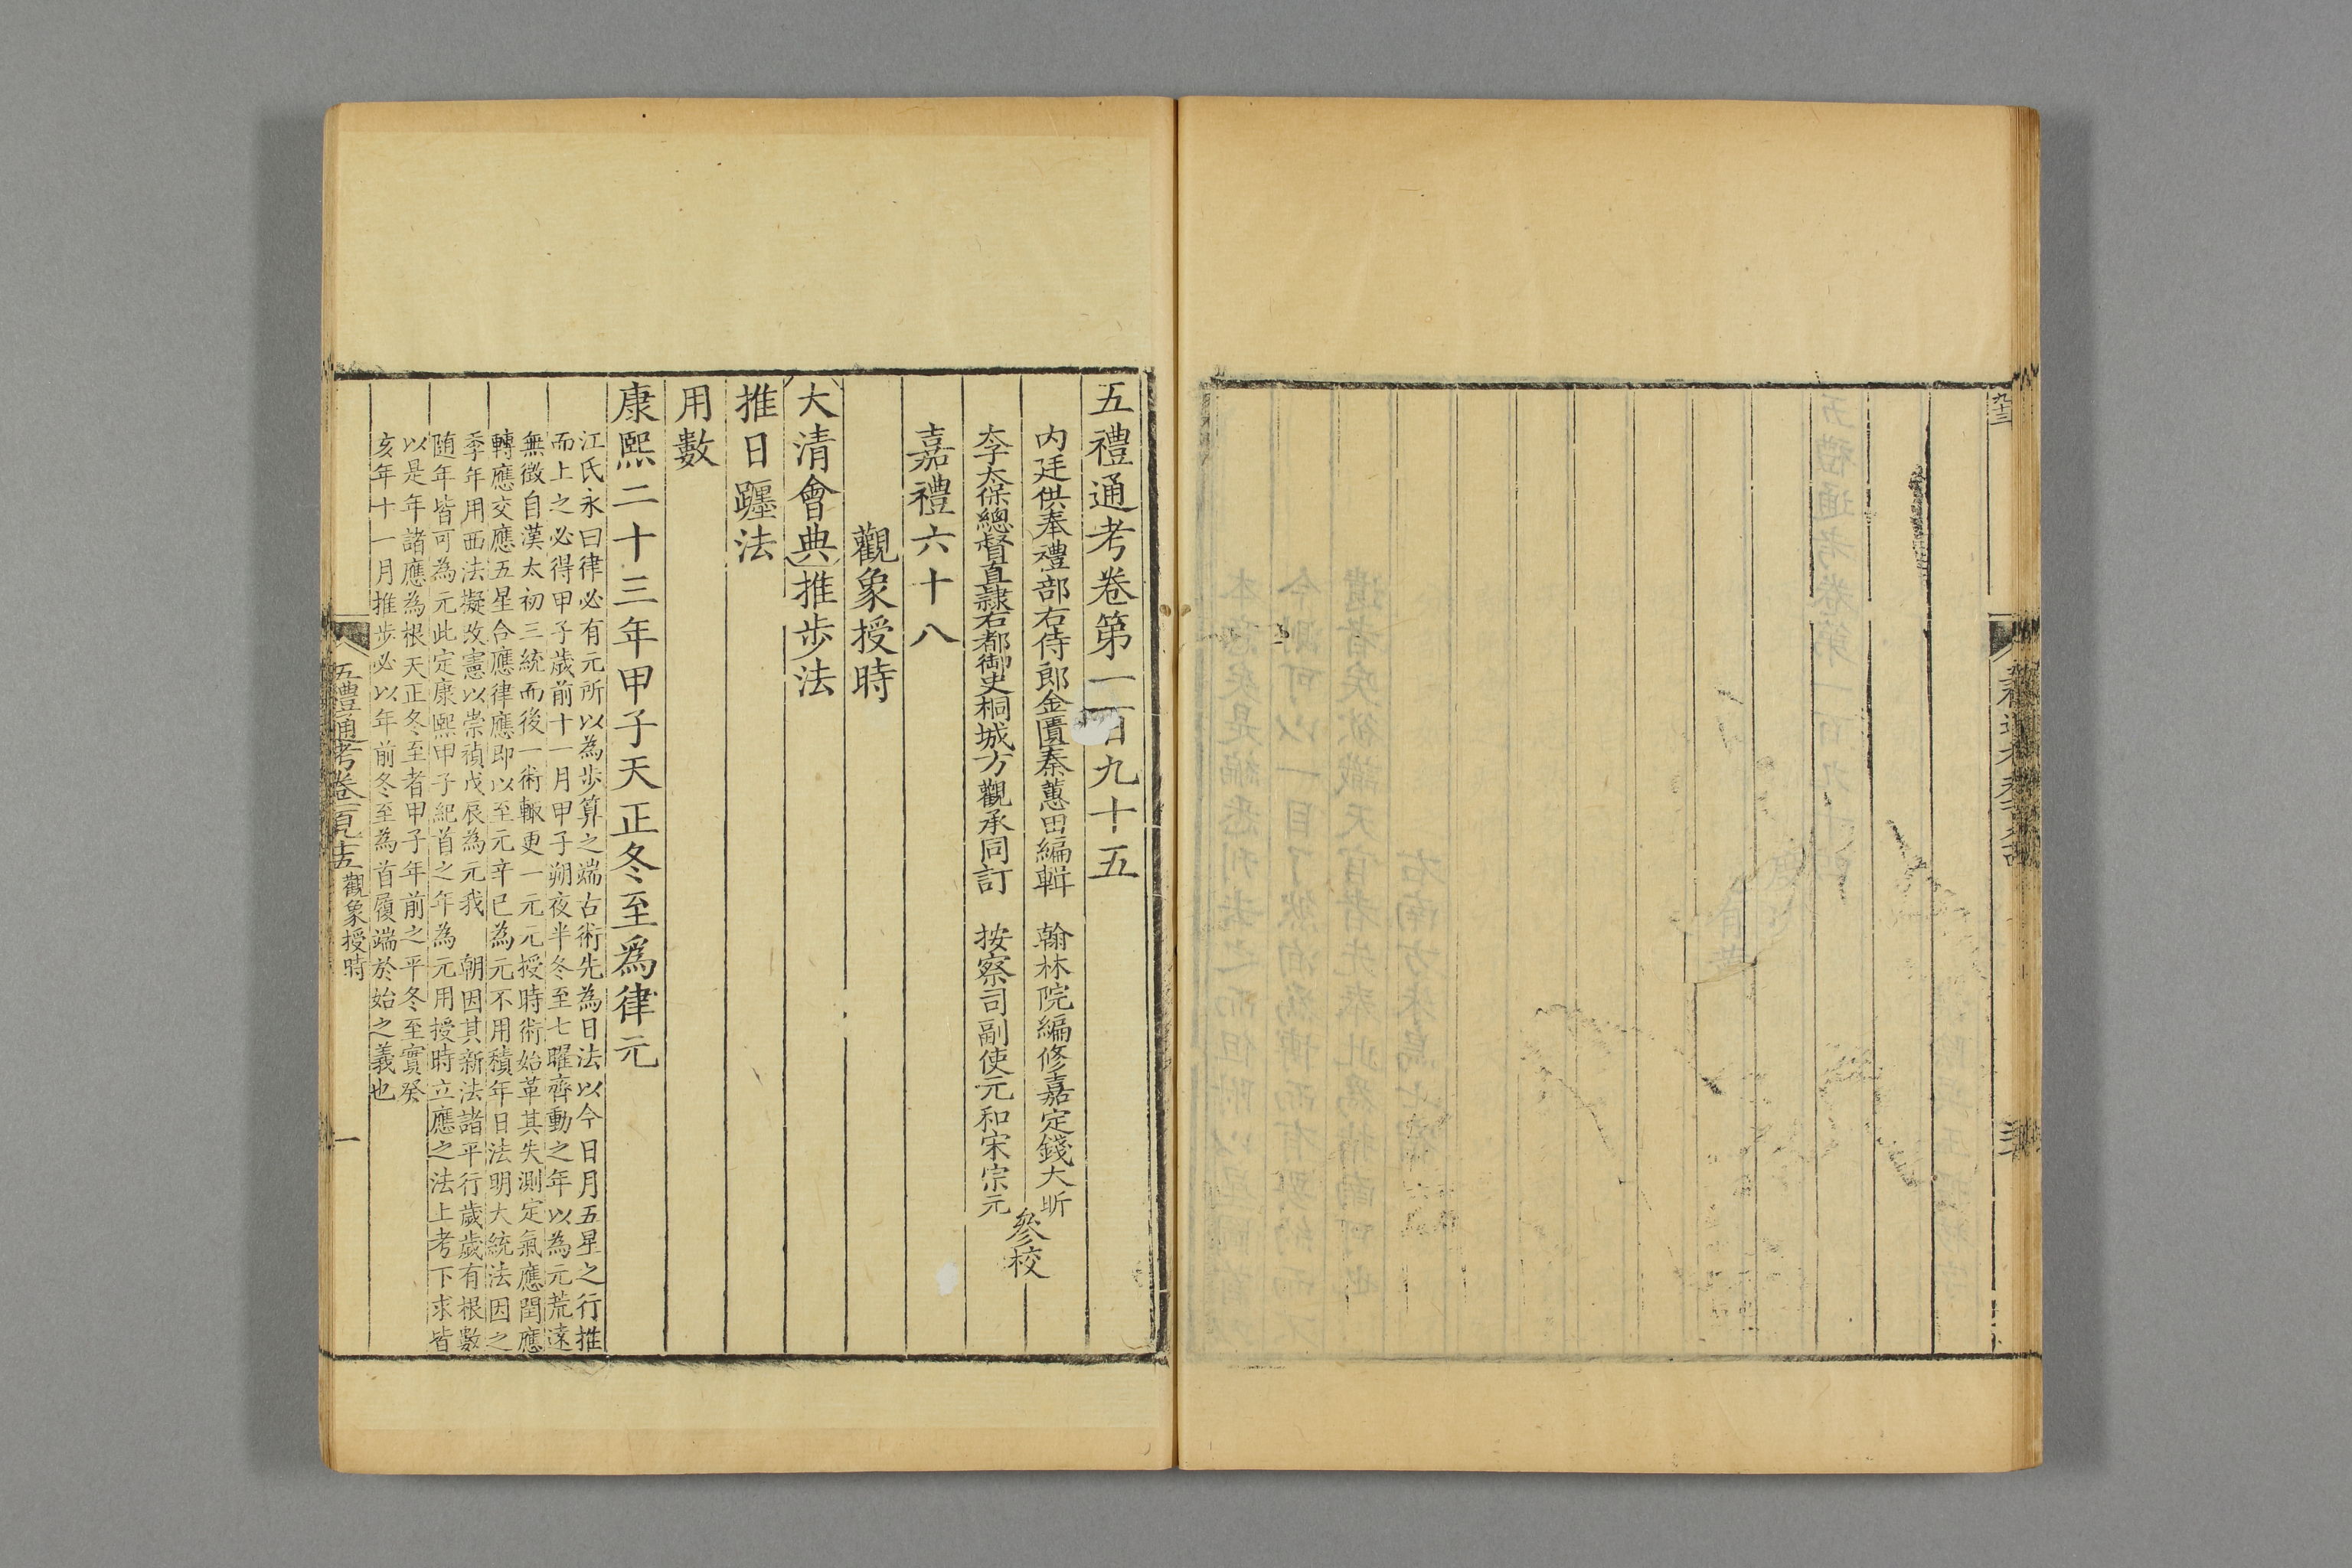 五禮通考卷第一百九十五
内廷供奉禮部右侍郎金匱秦蕙田編輯 翰林院編修嘉定錢大昕
太子太保總督直隸右都御史桐城方觀承同訂 按察司副使元和宋宗元
參校
嘉禮六十八
觀象授時
大清會典推步法
推日躔法
用數
康熙二十三年甲子天正冬至為律元
江氏永曰律必有元所以為步算之端古術先為日法以今日月五星之行推
而上之必得甲子歲前十一月甲子朔夜半冬至七曜齊動之年以為元荒遠
無徵自漢太初三統而後一術輒更一元元授時術始革其失測定氣應閏應
轉應交應五星合應律應即以至元辛巳為元不用積年日法明大統法因之
季年用西法擬改憲以崇禎戊辰為元我 朝因其新法諸平行歲歲有根數
随年皆可為元此定康熙甲子紀首之年為元用授時立應之法上考下求皆
以是年諸應為根天正冬至者甲子年前之平冬至實癸
亥年十一月推步必以年前冬至為首履端於始之義也
五禮通考卷一百九十五 觀象授時
一